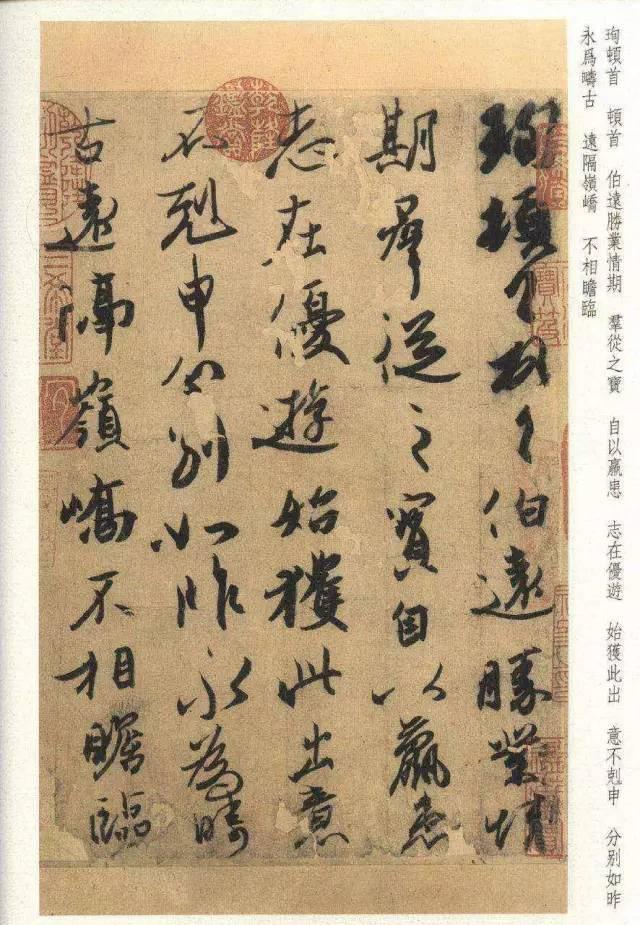 珣頓首 頓首 伯遠勝業情期 羣從之寶 自以羸患 志在優遊 始獲此出 意不剋申 分别如昨
永爲疇古 遠隔嶺嶠 不相瞻臨
珣頓〻首〻伯遠勝業情
期羣從之寶自以羸患
志在優遊始獲此出意
不剋申分别如昨永為疇
古遠隔嶺嶠不相瞻臨